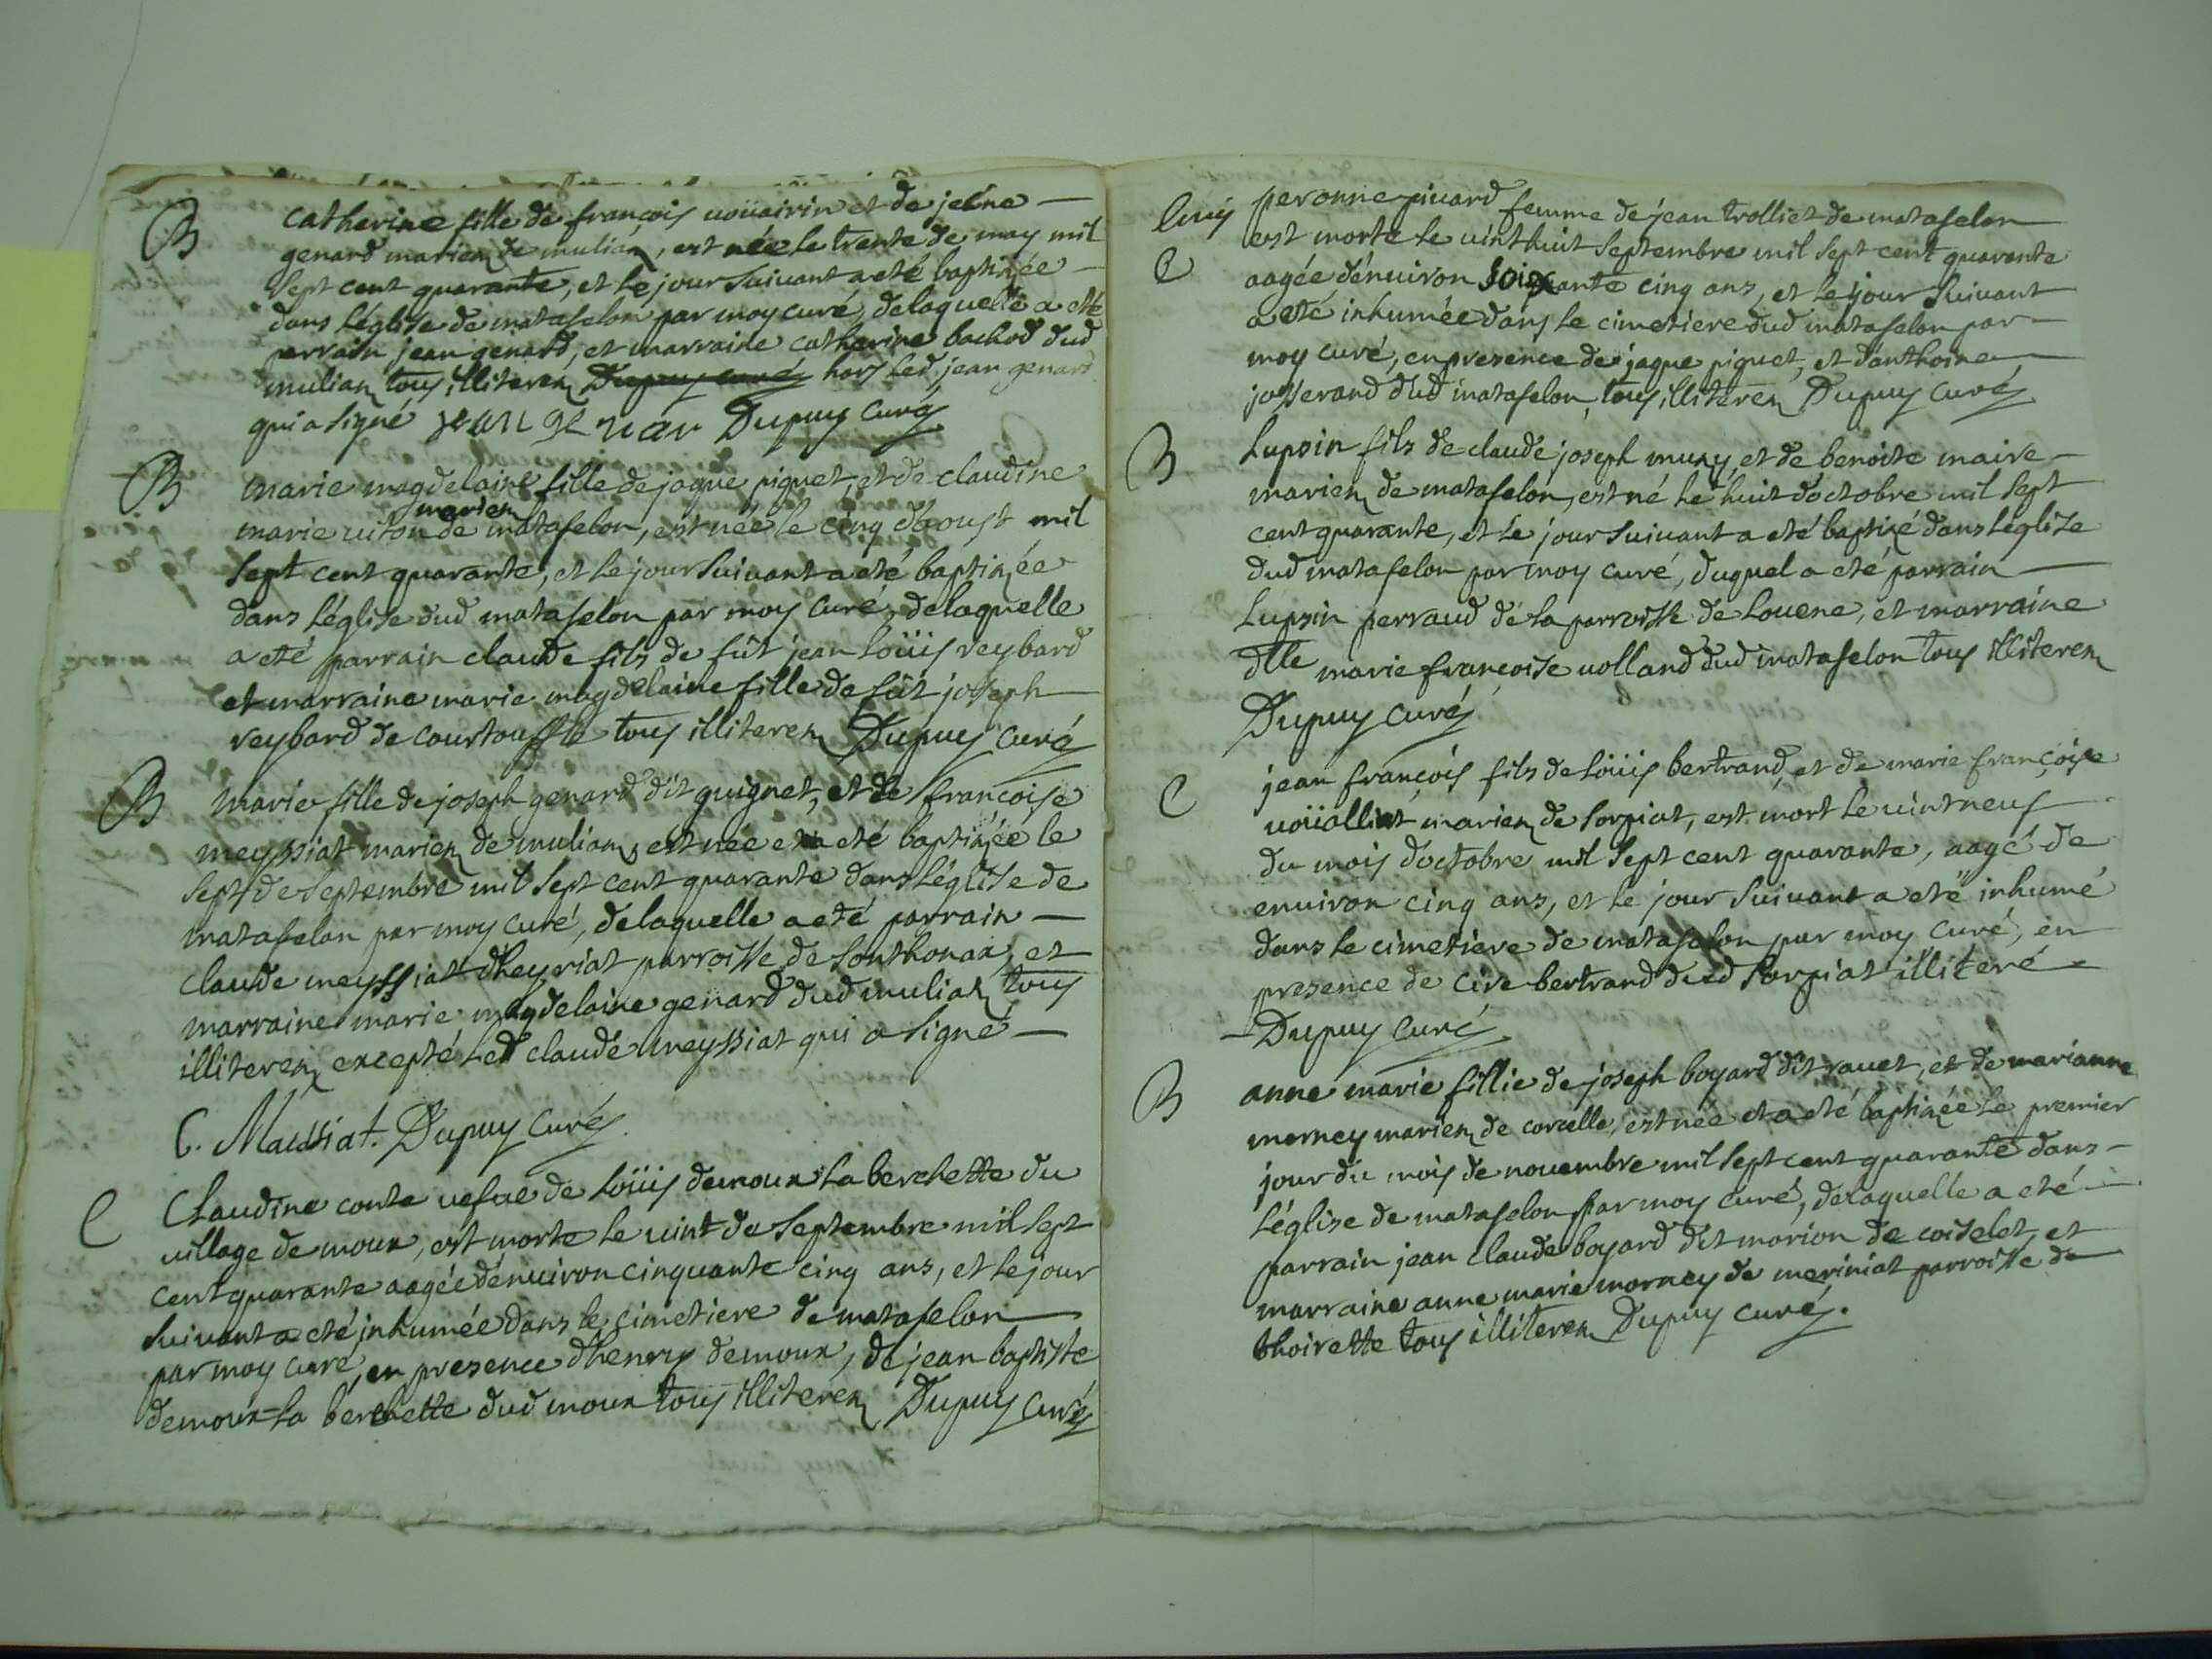 B
catherine fille de françois uoüairin et de jeêne
genard mariez de mulian, est née le trente de may mil
sept cent quarante, et le jour suivant a eté baptizée
dans léglise de matafelon par moy curé, delaquelle a eté
parrain jean genard, et marraine catherine bachod dud
mulian tous illiterez Dupuy curé hors led jean genard
qui a signé jean genar Dupuy Curé
B
marie magdelaine fille de jaque piquet, et de claudine
mariez
marie uiton de matafelon, est née le cinq daoust mil
sept cent quarante, et le jour suivant a eté baptizée
dans léglise dud matafelon par moy curé, delaquelle
a eté parrain claude fils de fût jean loüis reybard
et marraine marie magdelaine fille de fût joseph
reybard de courtouffle tous illiterez Dupuy curé
B
marie fille de joseph genard dit guignet, et de françoise
meyssiat mariez de mulian, est née et a eté baptizée le
sept de septembre mil sept cent quarante dans léglise de
matafelon par moy curé, delaquelle a eté parrain
claude meyssiat dheyriat parroisse de sonthonax, et
marraine marie magdelaine genard dud mulian tous
illiterez excepté led claude meyssiat qui a signé
C. Maissiat. Dupuy Curé
C
Claudine conte uefue de loüis demoux la berchette du
uillage de moux, est morte le uint de septembre mil sept
cent quarante aagée dénuiron cinquante cinq ans, et le jour
suivant a eté inhumée dans le cimetiere de matafelon
par moy curé, en presence dhenry demoux, de jean baptiste
demoux la berchette dud moux tous illiterez Dupuy curé
peronne piuard femme de jean trolliet de matafelon
est morte le uint huit septembre mil sept cent quarante
C
aagée dénuiron soixante cinq ans, et le jour suivant
a eté inhumée dans le cimetiere dud matafelon par
moy curé, en presence de jaque piquet, et danthoine
josserand dud matafelon, tous illiterez Dupuy curé
B
Lupsin fils de claude joseph muzy, et de benoite maire
mariez de matafelon, est né le huit doctobre mil sept
cent quarante, et le jour suivant a eté baptizé dans léglise
dud matafelon par moy curé, duquel a eté parrain
Lupsin perraud de la parroisse de louene, et marraine
dlle marie françoise uolland dud matafelon tous illiterez
Dupuy curé
C
jean françois fils de loüis bertrand, et de marie françoise
uoüalliat mariez de sorpiat, est mort le uint neuf
du mois doctobre mil sept cent quarante, aagé de
enuiron cinq ans, et le jour suivant a eté inhumé
dans le cimetiere de matafelon par moy curé, en
presence de cire bertrand dud sorpiat illiteré
Dupuy curé
B
anne marie fillie de joseph boyard dit rauet, et de marianne
mornay mariez de corcelle, est née et a eté baptizée le premier
jour du mois de nouembre mil sept cent quarante dans
léglise de matafelon par moy curé, delaquelle a eté
parrain jean claude boyard dit marion de coiselet, et
marraine anne marie mornay de meriniat parroisse de
thoirette tous illiterez Dupuy curé.